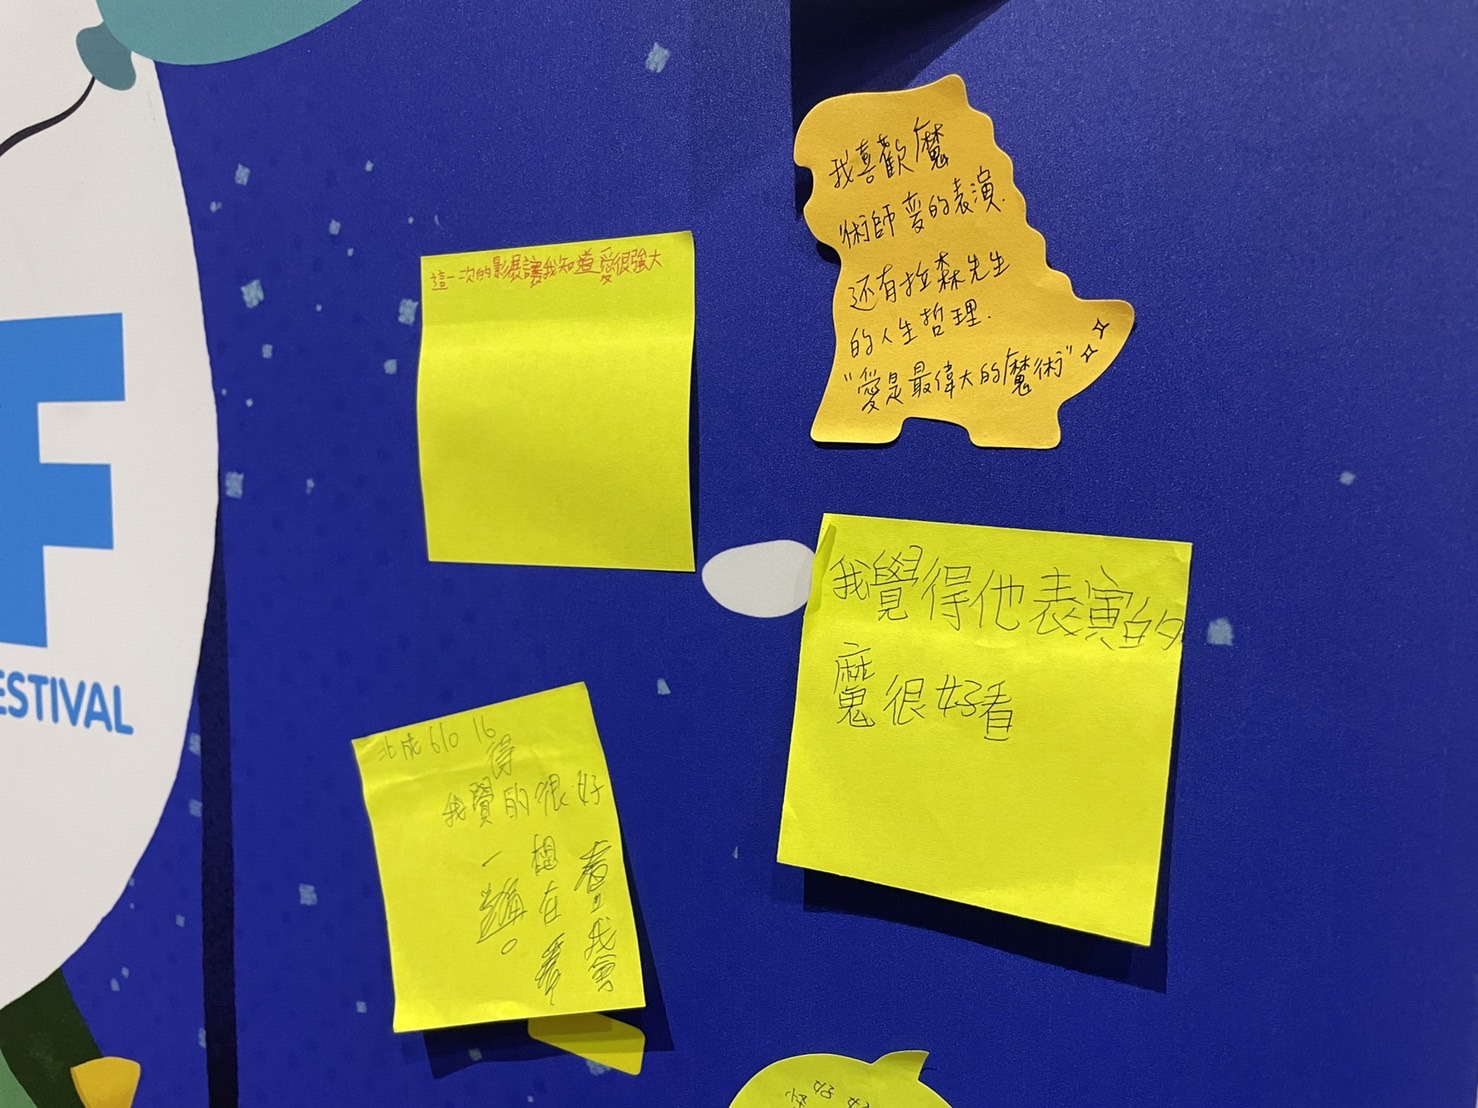 F
ESTIVAL
這一次的影展讓我知道愛很強大
我喜歡魔
術師變的表演.
還有拉森先生
的人生哲理.
"愛是最偉大的魔術"
我覺得他表演的
魔很好看
北成610 16
得
我覺的很好
看!我會
想在看
一遍。